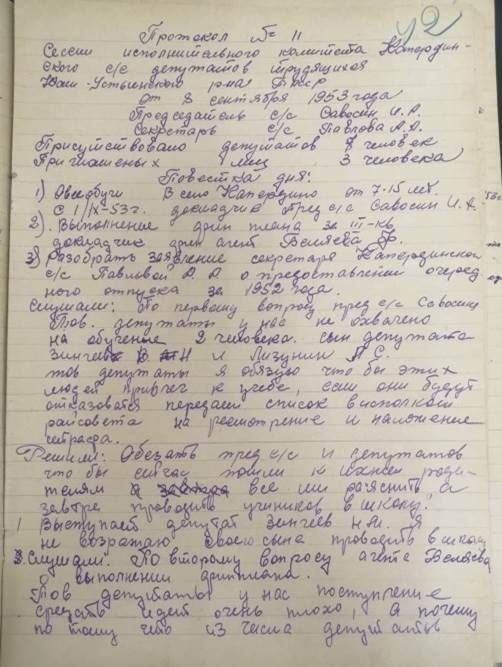 42
Протокол № 11
Сессии исполнительного комитета Напердин-
ского с/с депутатов трудящихся
от 8 сентября 1953 года
Председатель с/с Савосин И.А.
Секретарь с/с Павлова А.А.
Присутствовало депутатов 8 человек
Приглашеных лиц 3 человека
Повестка дня:
1) О всеобуче В село от 7-15 лет
С 1/IX-53г. докладчик Пред с/с Савосин И.А.
2). Выполнение фин плана за III-кв
докладчик фин агент Беляева
3) Разобрать заявление секретаря
с/с Павлвой А.А о предоставлении очеред
ного отпуска за 1952 года.
Слушали: По первому вопросу пред с/с Савосин
Тов. депутаты у нас не охвачено
на обучение 2 человека. сын депутата
Зинчев и Лизунин П.С.
тов депутаты я обязую что бы этих
людей привлеч к учебе, если они будут
отказоватся передаем список висполком
райсовета на расмотрение и наложение
штрафа.
Решили: Обезать пред с/с и депутатов
что бы сейчас пошли к ихнем роди-
телям все им разяснить, а
завтра проводить учеников в школу.
Выступает депутат Зинчев Н.И. Я
не возражаю своего сына проводить в школу
Слушали: По второму вопросу агента Беляева
о выполнении финплана.
Тов депутаты у нас поступление
средств идет очень плохо, А почему
по тому что из числа депутатов